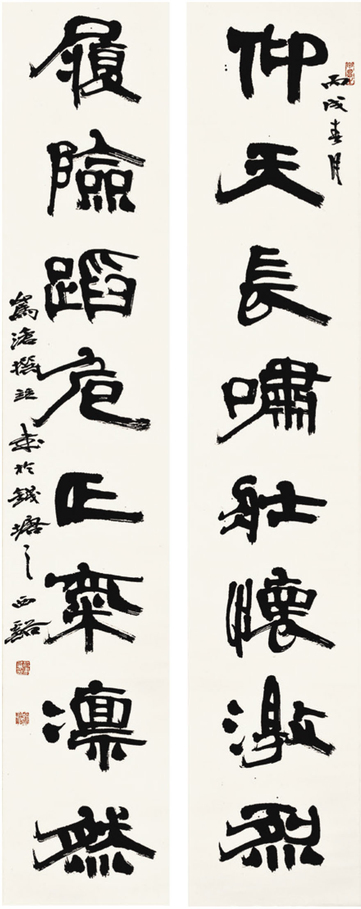 丙戌春月
仰天長嘯壯懷激烈
履險蹈危正氣凛然
於錢塘之西谿